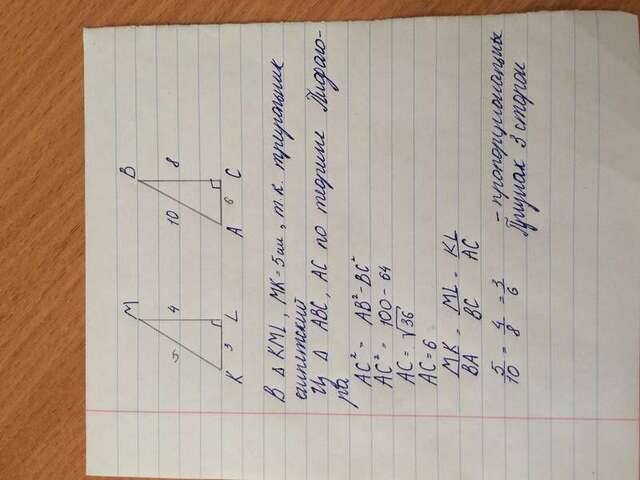 M B
5 4 10 8
K 3 L A 6 C
В Δ KML, MK = 5см, т.к. треугольник
египетский
Из Δ ABC, AC по теореме Пифаго-
ра
AC² = AB² - BC²
AC² = 100 - 64
AC = √36
AC = 6
MK/BA = ML/BC = KL/AC
5/10 = 4/8 = 3/6 - пропорциональны
Признак 3 сторон